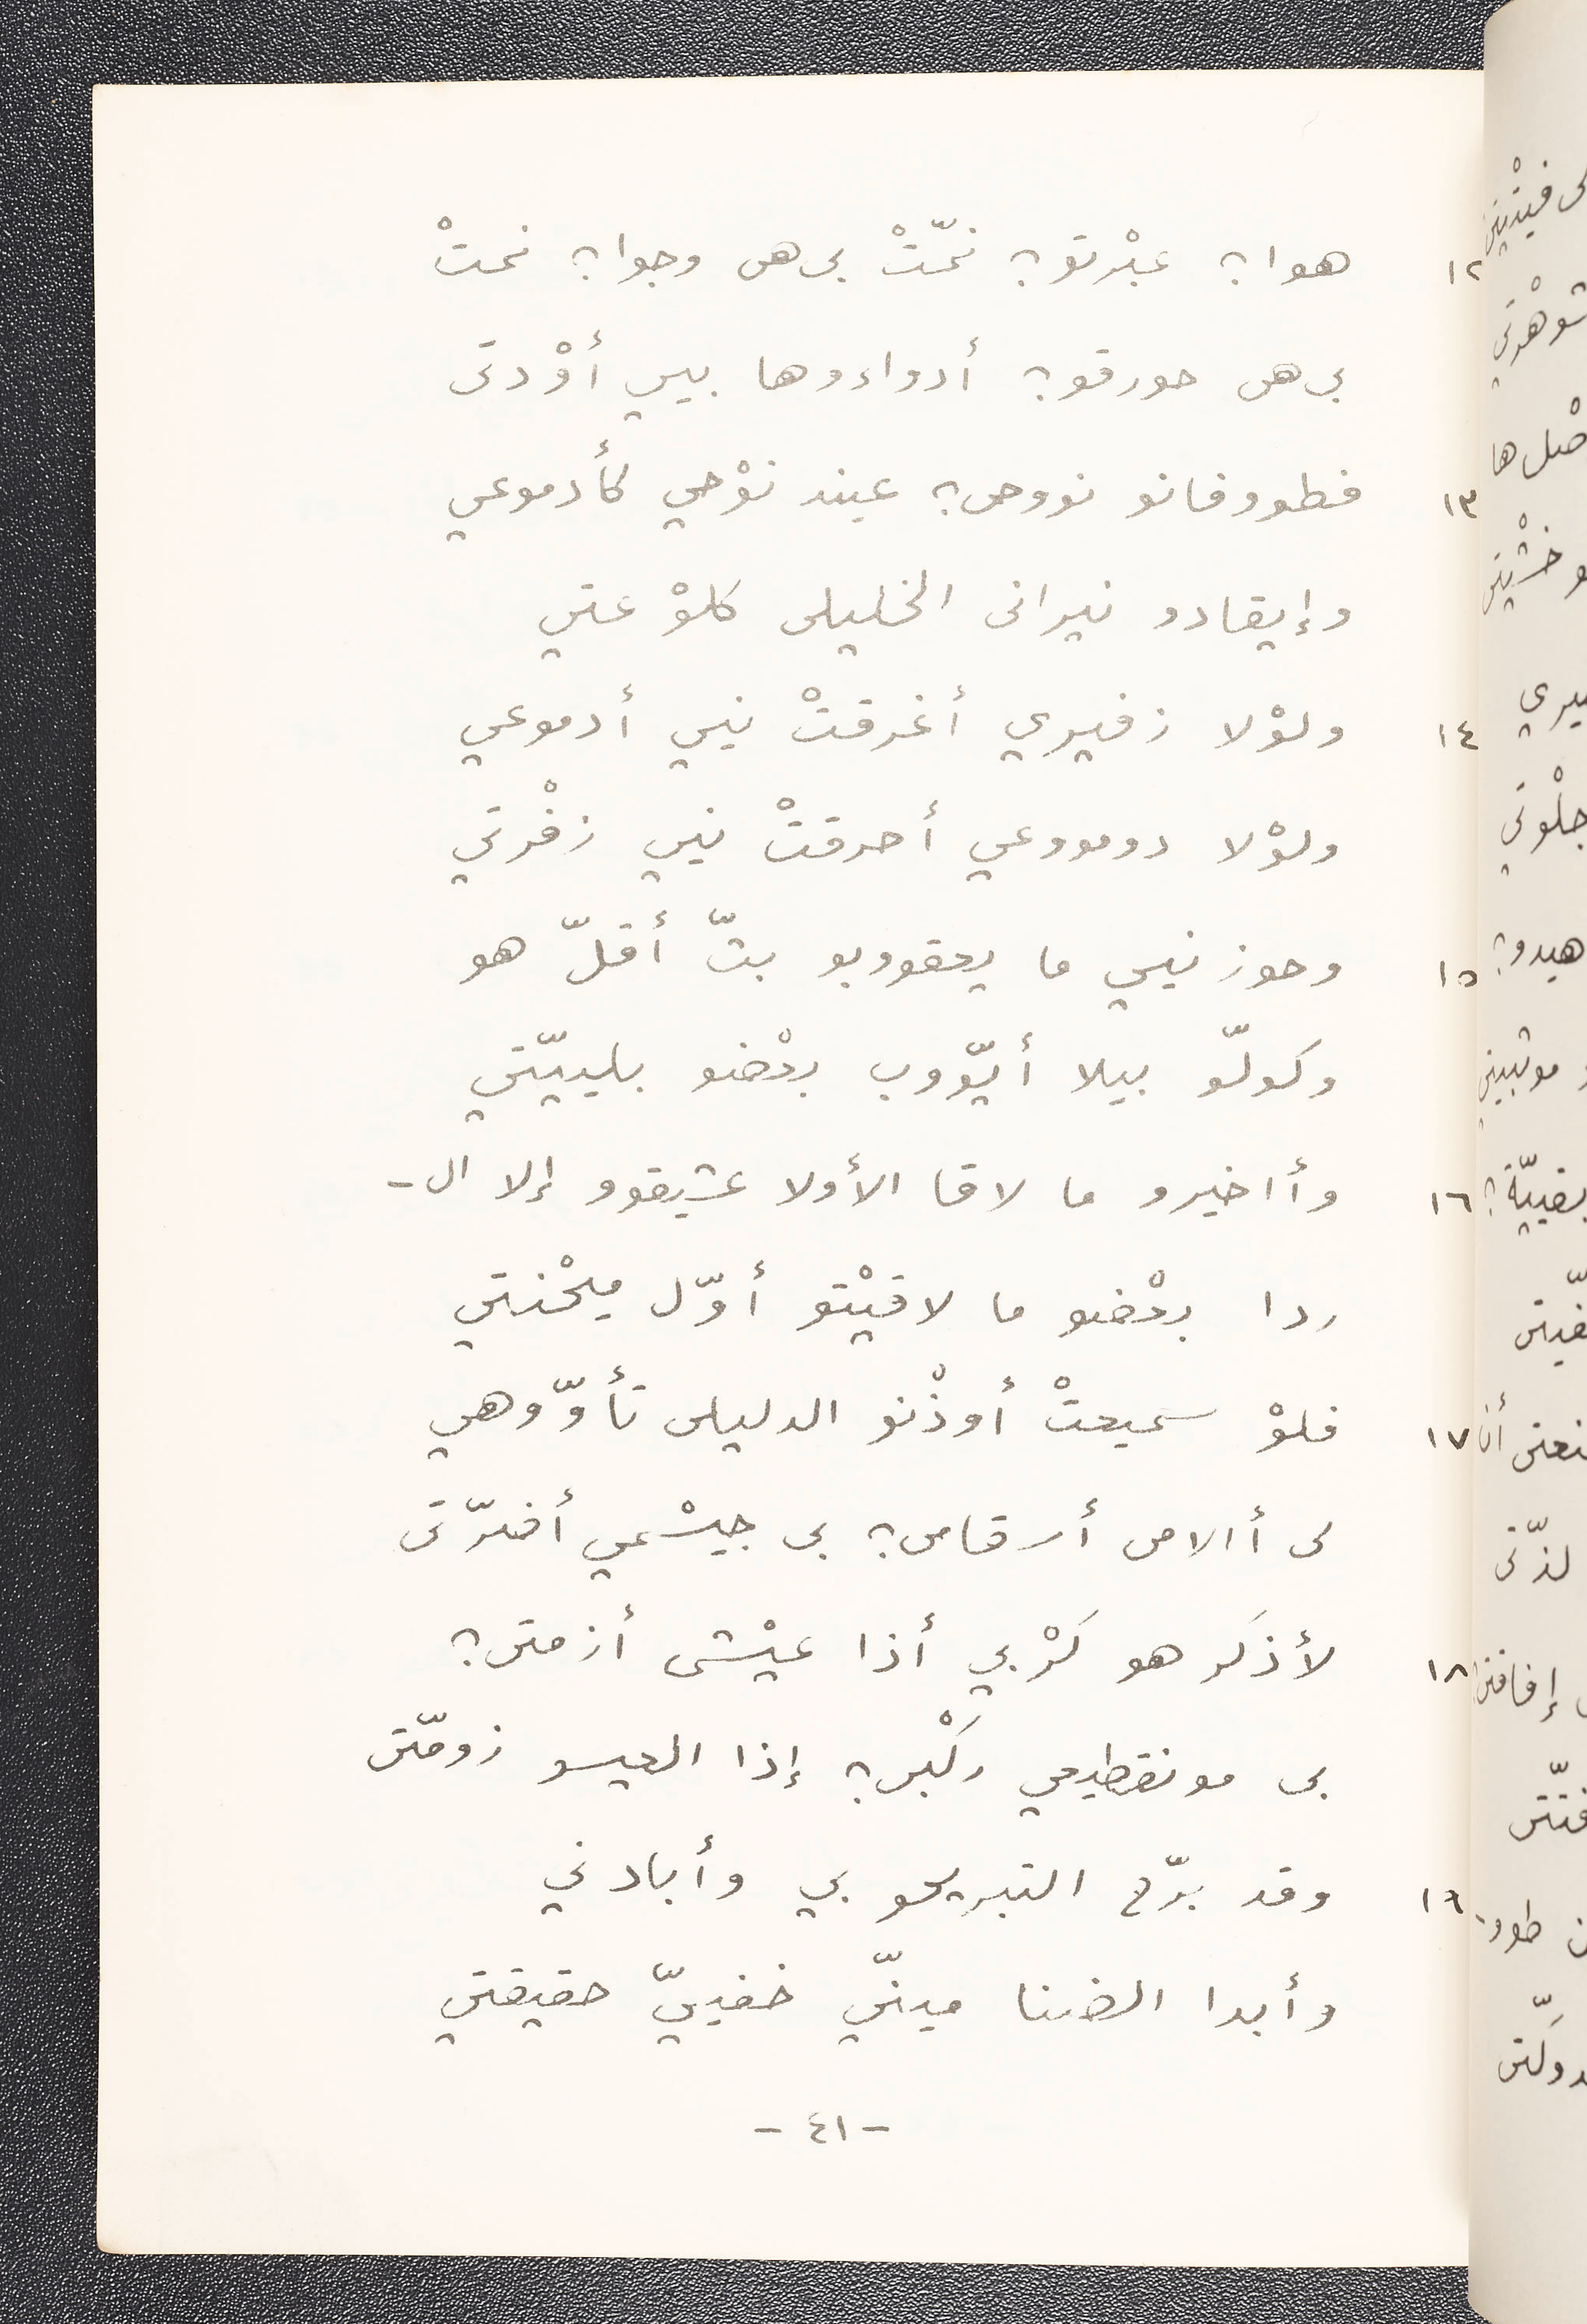 ١٢ هوا؟ عبْرتو؟ نمّتْ بى هى وجوا؟ نمتْ
بى هى حورقو؟ أدواءوها بيي أوْدتى
١٣ فطووفانو نووحى؟ عيند نوْحي كأدموعي
وإيقادو نيرانى الخليلى كلوْعتي
١٤ ولوْلا زفيري أغرقتْ نيي أدموعي
ولوْلا دومووعي أحرقتْ نيي زفْرتي
١٥ وحوزنيي ما يعقووبو بتّ أقلّ هو
وكولّو بيلا أيّووب بعْضو بلييّتي
١٦ وأاخيرو ما لاقا الأولا عشيقوو إلا ال-
ردا بعْضو ما لاقيْتو أوّل ميحْنتي
١٧ فلوْ سميعتْ أوذْنو الدليلى تأوّوهي
لى أالامى أسقامى؟ بى جيسْمي أضرّتى
١٨ لأذكَر هو كَرْبي أذا عيْشى أزمتى؟
بى مونقطيعي ركْبى؟ إذا العيسو زومّتى
١٩ وقد برّح التبريحو بي وأبادني
وأبدا الضنا مينّي خفييّ حقيقتي
- ٤١ -